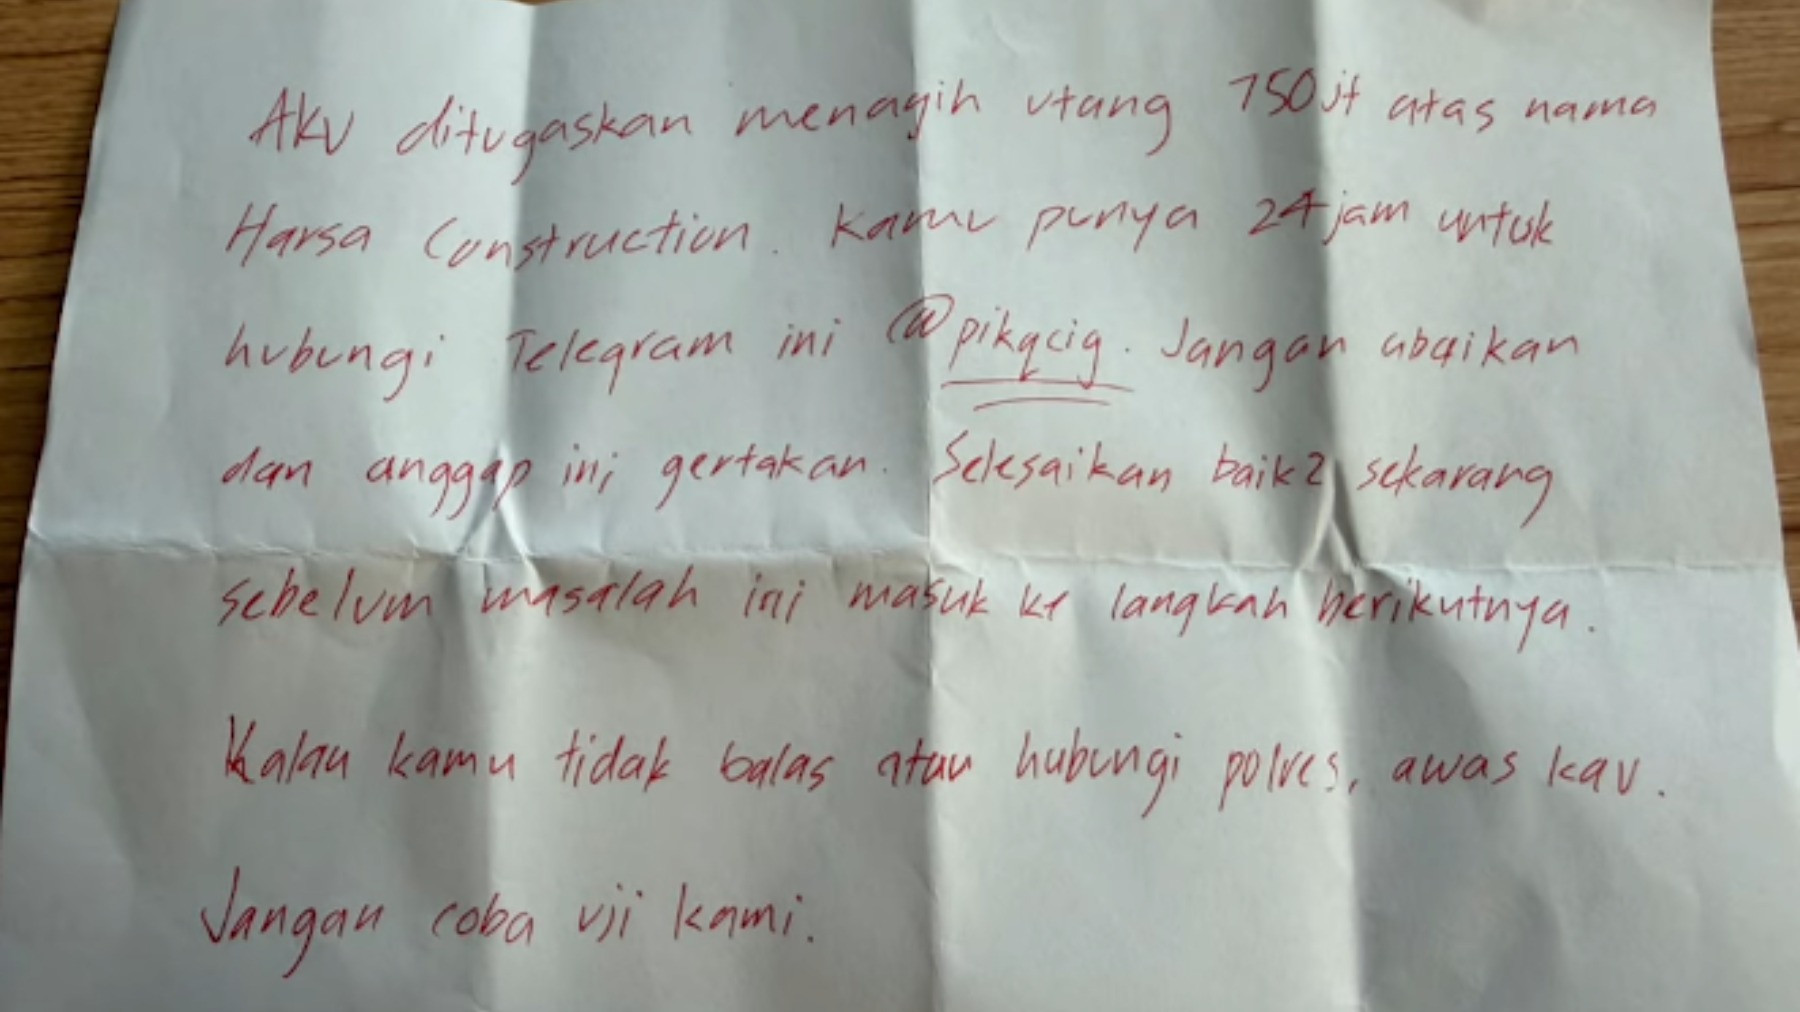 Aku ditugaskan menagih utang 750jt atas nama
Harsa Construction. Kamu punya 24 jam untuk
hubungi Telegram ini @pikqcig. Jangan abaikan
dan anggap ini gertakan. Selesaikan baik2 sekarang
sebelum masalah ini masuk ke langkah berikutnya.
Kalau kamu tidak balas atau hubungi polres, awas kau.
Jangan coba uji kami.